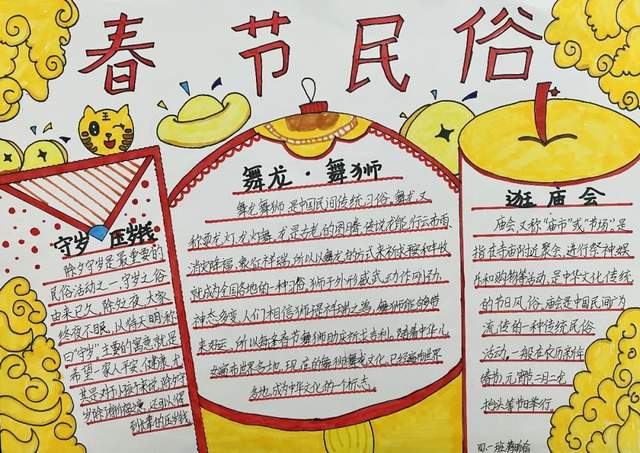 春节民俗
守岁 压岁钱
除夕守岁是最重要的
民俗活动之一,守岁之俗
由来已久,除夕夜,大家
终夜不眠,以待天明,称
曰"守岁",主要的寓意就是
希望一家人平安、健康,尤
其是对于小孩子来说,除夕守
到快乐的压岁钱
舞龙·舞狮
舞龙舞狮是中国民间传统习俗,舞龙又
称耍龙灯、龙灯舞,龙是古老的图腾,传说龙能行云布雨、
消灾降福,象征祥瑞,所以以舞龙的方式来祈求平安和丰收
就成为全国各地的一种习俗,狮子外形威武,动作刚劲,
神态多变,人们相信狮子是祥瑞之兽,舞狮能够带
来好运,所以每逢春节舞狮助庆祈求吉利,随着中华儿
女遍布世界各地,现在的舞狮舞龙文化,已经遍布世界
各地,成为中华文化的一个标志。
逛庙会
庙会,又称"庙市"或"节场",是
指在寺庙附近聚会,进行祭神、娱
乐和购物等活动,是中华文化传统
的节日风俗,庙会是中国民间广为
流传的一种传统民俗
活动,一般在农历新年
春节、元宵节、二月二龙
抬头等节日举行。
四.一班